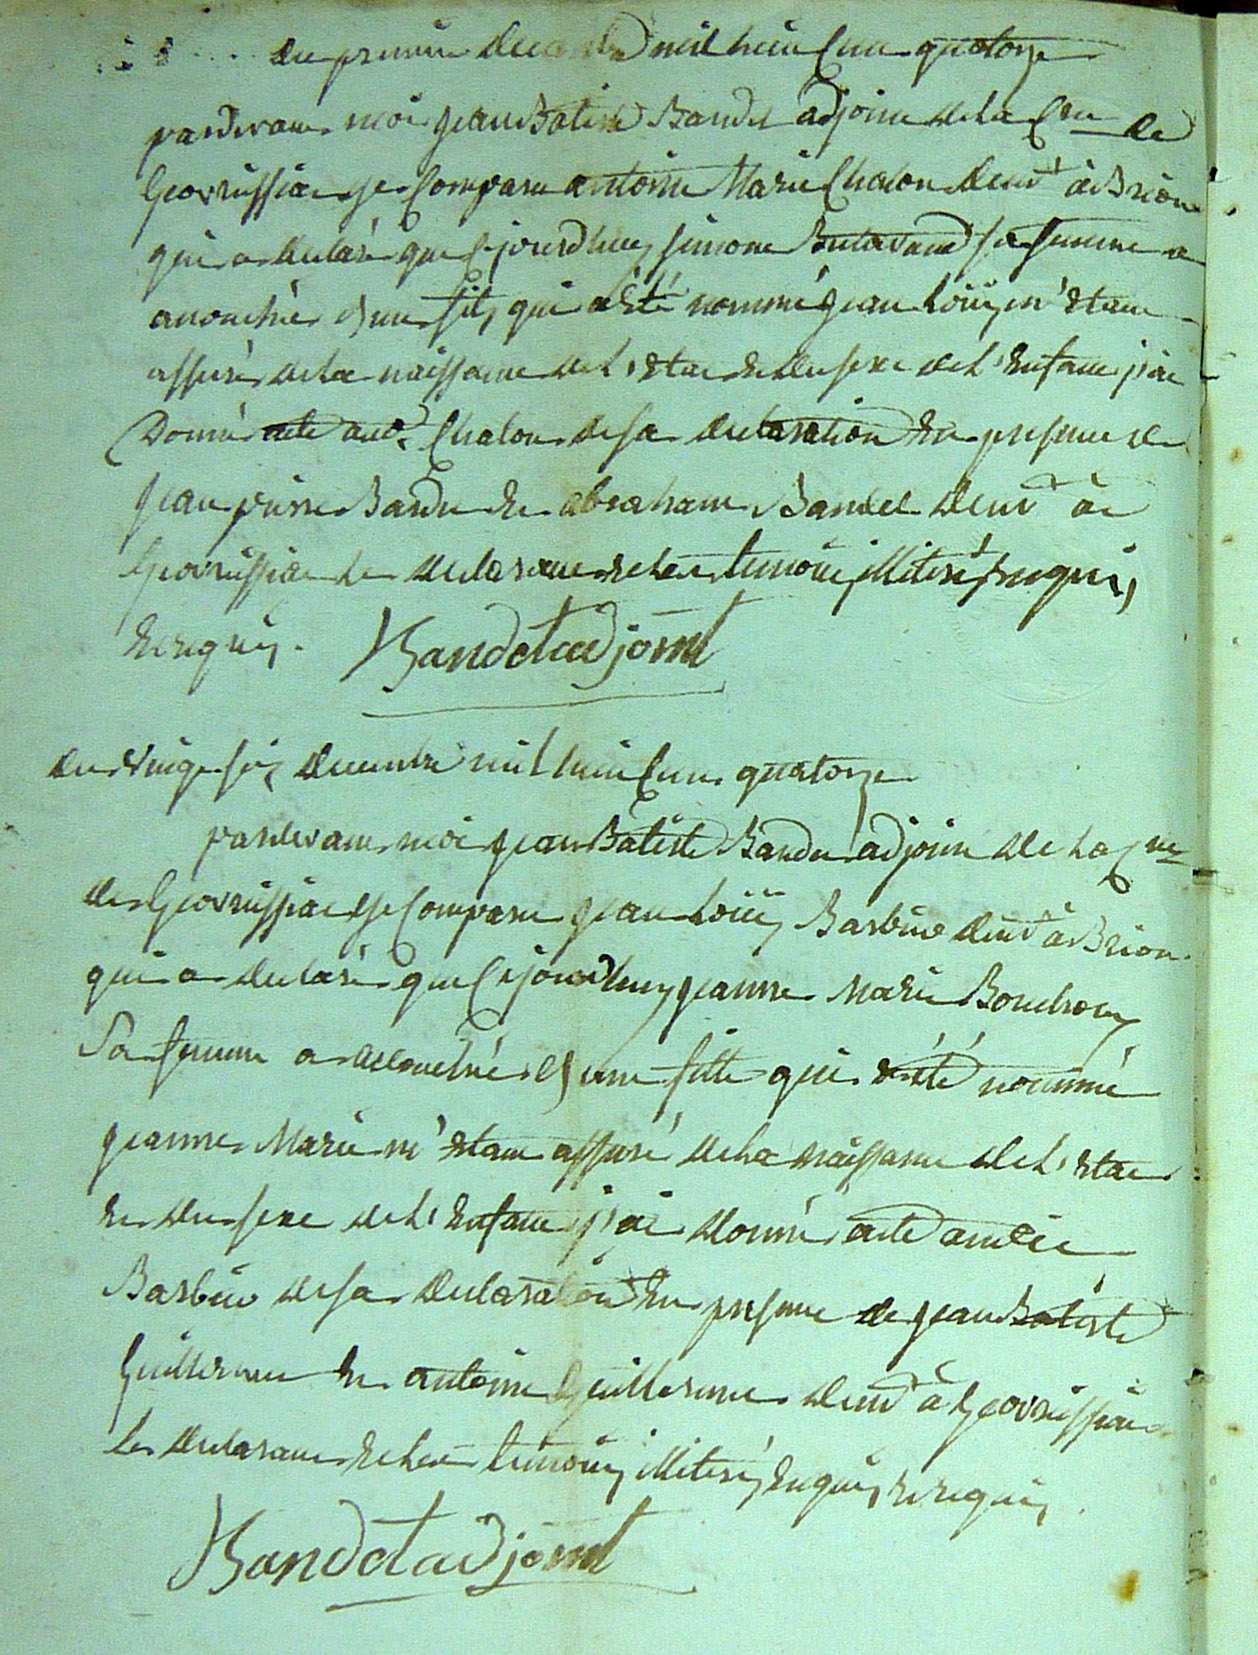 du premier decembre mil huit Cent quatorze
pardevant moi jean Batiste Bandet adjoint de la Cne de
Geovrissiat est Comparu antoine Marie Chalon demt à Brion
qui a declaré que Cejourdhuy simone sa femme a
accouchée d'un fils qui a été nommé jean Loüis m'etant
assuré de la naissance de l'etat et du sexe de l'enfant j'ai
Donné acte aud. Chalon de sa declaration En presence de
jean pierre Bandet Et abraham Bandet demt à
Geovrissiat le declarant et les temoins illiterés Enquis
Et requis. Bandet adjoint
du vingt six decembre mil huit Cent quatorze
pardevant moi jean Batiste Bandet adjoint de La Cne
de Geovrissiat est Comparu jean Loüis Barbier demt à Brion
qui a declaré que Cejourdhuy jeanne Marie
Sa femme a accouchée d'une fille qui a été nommé
jeanne Marie m'etant assuré de la naissance de l'etat
Et du sexe de l'Enfant j'ai donné acte audit
Barbier de sa declaration En presence de jean Batiste
Guillerme Et antoine Guillerme demt à Geovrissiat
le declarant et les temoins illiterés Enquis et requis
Bandet adjoint